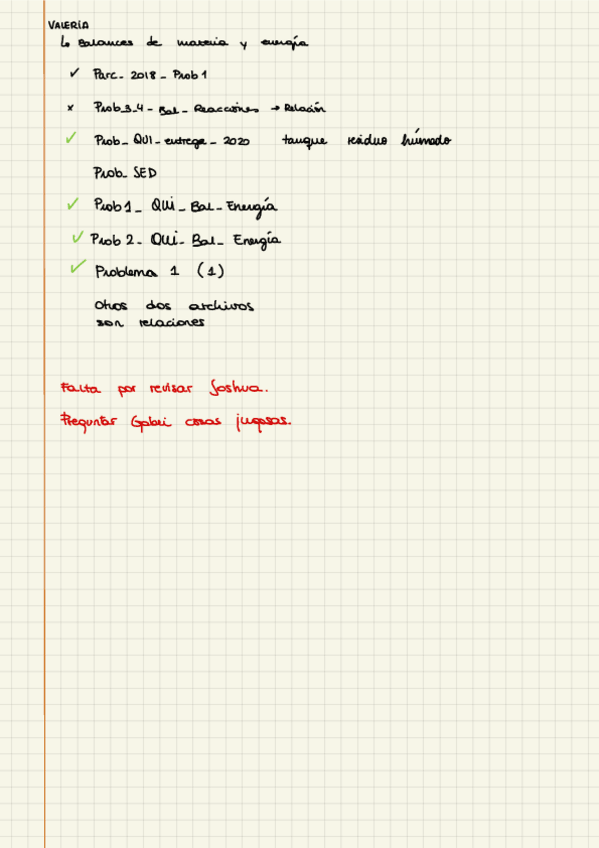 VALERÍA
↳ Balances de materia y energía
✓ Parc_ 2018 _ Prob 1
x Prob_3_4 _ Bal _ Reacciones → Relación
✓ Prob_ QUI _ entrega _ 2020 tanque residuo húmedo
Prob_ SED
✓ Prob 1 _ QUI _ Bal _ Energía
✓ Prob 2 _ QUI _ Bal _ Energía
✓ Problema 1 (1)
Otros dos archivos
son relaciones
Falta por revisar Joshua.
Preguntar Gabri cosas jugosas.